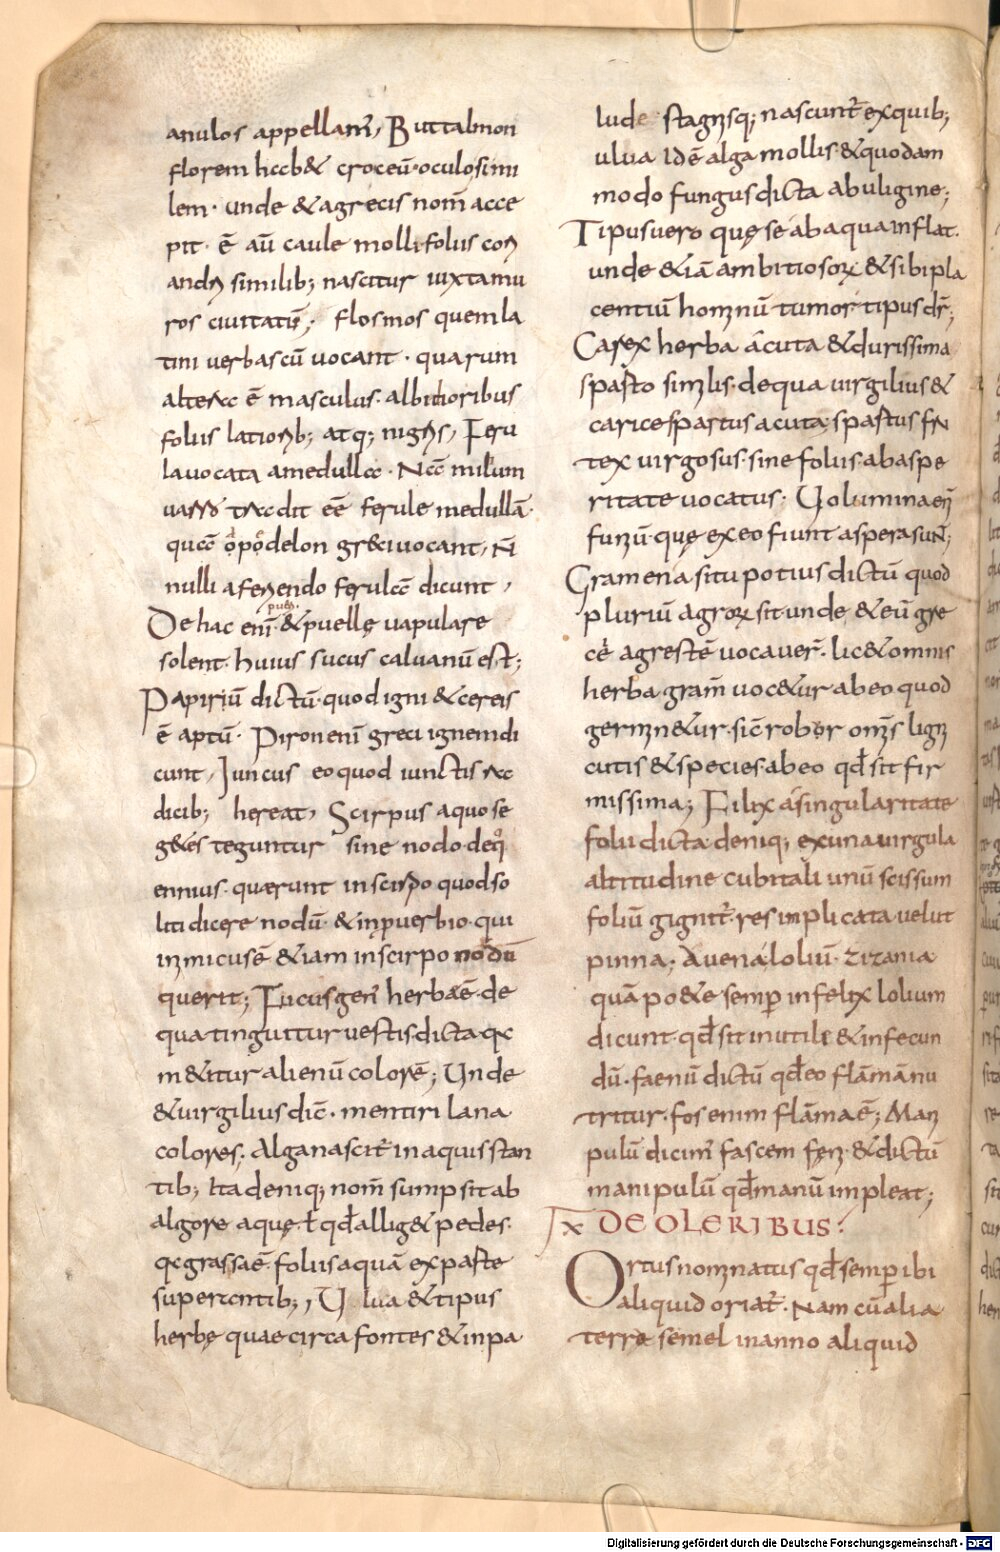 anulos appellam̄, Buttalmon
florem habet croceū·oculosimi
lem· unde & agrecis nom̄ acce
pit· ē aū caule molli foliis cori
andri similib; nascitur iuxta mu
ros ciuitatū; flosmos quem la
tini uerbascū uocant · quarum
altera ē masculus· albitioribus
foliis latiorib; atq; nigris, Feru
la uocata a medulla · Nā milum
uarro tradit eē ferule medullā·
quā opodelon greci uocant, N̄
nulli a ferendo ferulā dicunt,
puer.
De hac eni & puellę uapulare
solent· huius sucus caluanū est;
Papiriū dictū·quod igni & cereis
ē aptū· Piron eni greci ignem di
cunt, Juncus eo quod iunctis ra
dicib; hereat, Scirpus a quo se
g&es teguntur sine nodo· deq̊
ennius· quaerunt in scirpo quod so
liti dicere nodū· & in ꝓuerbio· qui
inimicus ē & iam in scirpo nodū
querit; Fucus gen' herbae ē· de
qua tinguitur uestis· dicta qa
m&itur alienū colorē; Unde
& uirgilius dic̄· mentiri lana
colores; Alga nascit̄ in aquis stan
tib; Ita deniq; nom̄ sumpsit ab
algore aquę· ł qđ allig& pedes·
qa grassa ē· foliis aquā ex parte
superantib;, Ulua & tipus
herbę quae circa fontes & in pa
lude stagnisq; nascunt̄ ex quib;
ulua idē alga mollis· & quodam
modo fungus dicta ab uligine;
Tipus uero quę se ab aqua inflat·
unde & iā ambitiosorꝝ & sibi pla
centiū hominū tumor tipus dr̄;
Carex herba acuta & durissima
sparto similis· de qua uirgilius &
carice spartus acuta; spartus fru
tex uirgosus· sine foliis ab aspe
ritate uocatus· Uolumina eni
funiū· quę ex eo fiunt aspera sun̄;
Gramen a situ potius dictū quod
pluriū agrorꝝ sit unde & eū gre
ce agrestē uocauer̄· lic& omnis
herba gram̄ uoc&ur ab eo quod
germin&ur· sic̄ robor omīs ligni
cutis & species· ab eo qđ sit fir
missima; Filix a singularitate
folii dicta· deniq; ex una uirgula
altitudine cubitali unū scissum
foliū gignit̄· res inplicata uelut
pinna; Auena· loliū· zizania
quā po&e semp̄ infelix lolium
dicunt· qđ sit inutile & infecun
dū· faenū dictū qđ eo flāma nu
tritur· fos enim flāma ē; Mani
pulū dicim̄ fascem feni· & dictū
manipulū qđ manū impleat;
X DE OLERIBUS:
Ortus nominatus qđ semp̄ ibi
aliquid oriat̄· Nam cū alia
terra semel in anno aliquid
Digitalisierung gefördert durch die Deutsche Forschungsgemeinschaft - DFG